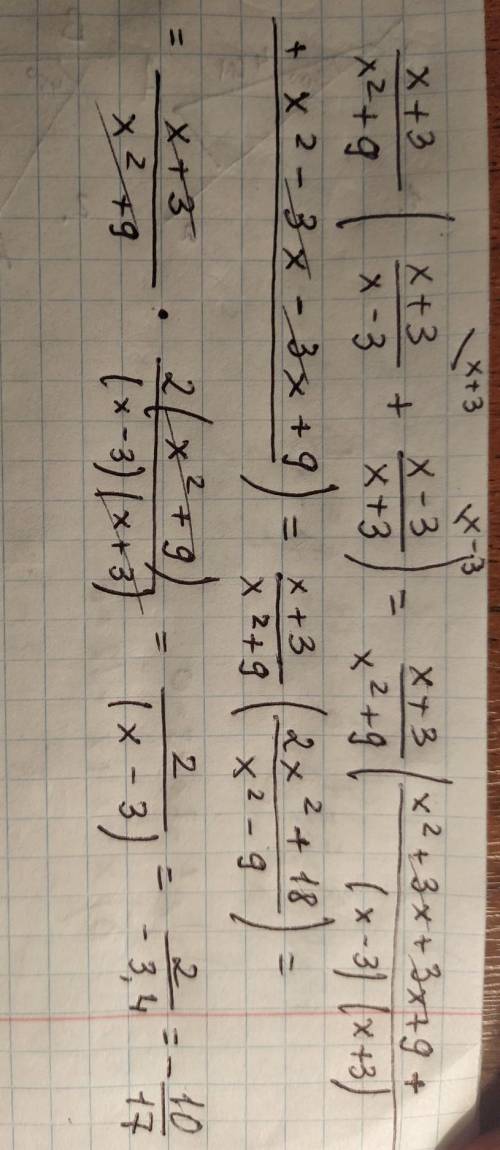 x+3/x²+9 (x+3/x-3 + x-3/x+3) = x+3/x²+9 (x²+3x+3x+9+/(x-3)(x+3)
x+3 x-3
+x²-3x-3x+9) = x+3/x²+9 (2x²+18/x²-9) =
= x+3/x²+9 · 2(x²+9)/(x-3)(x+3) = 2/(x-3) = 2/-3,4 = -10/17